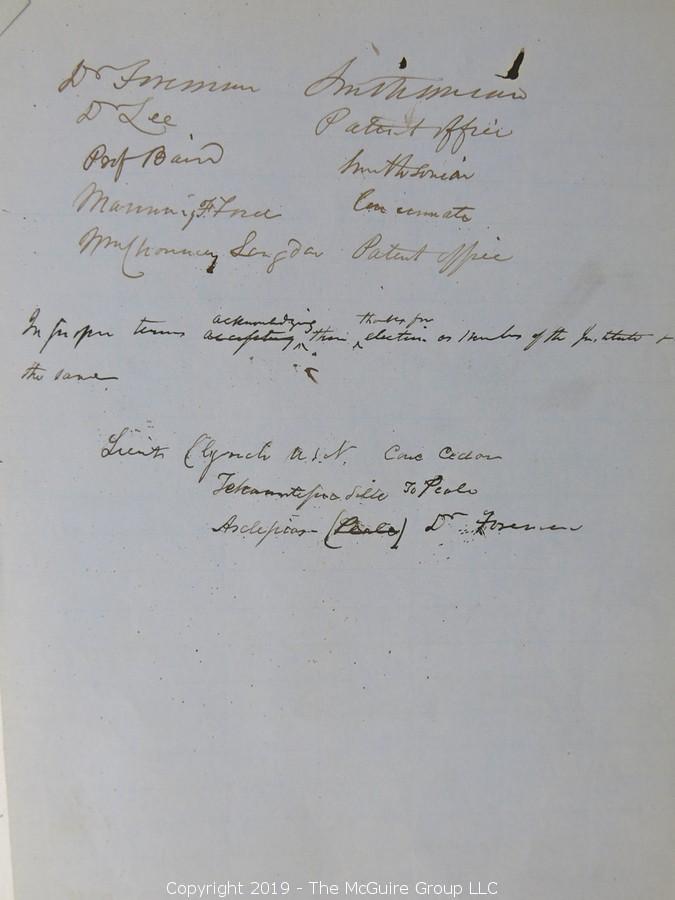 Dr Foreman Smithsonian
Dr Lee Patent Office
Prof Baird Smithsonian
Manning F. Force Cincinnati
Wm Chauncey Langdon Patent office
In proper terms accepting acknowledging their thanks for election as members of the Institute &
the same
Lieut Lynch U.S.N. Cone Cedar
Silk To Peale
Asclepias (Peale) Dr Foreman
Copyright 2019 - The McGuire Group LLC